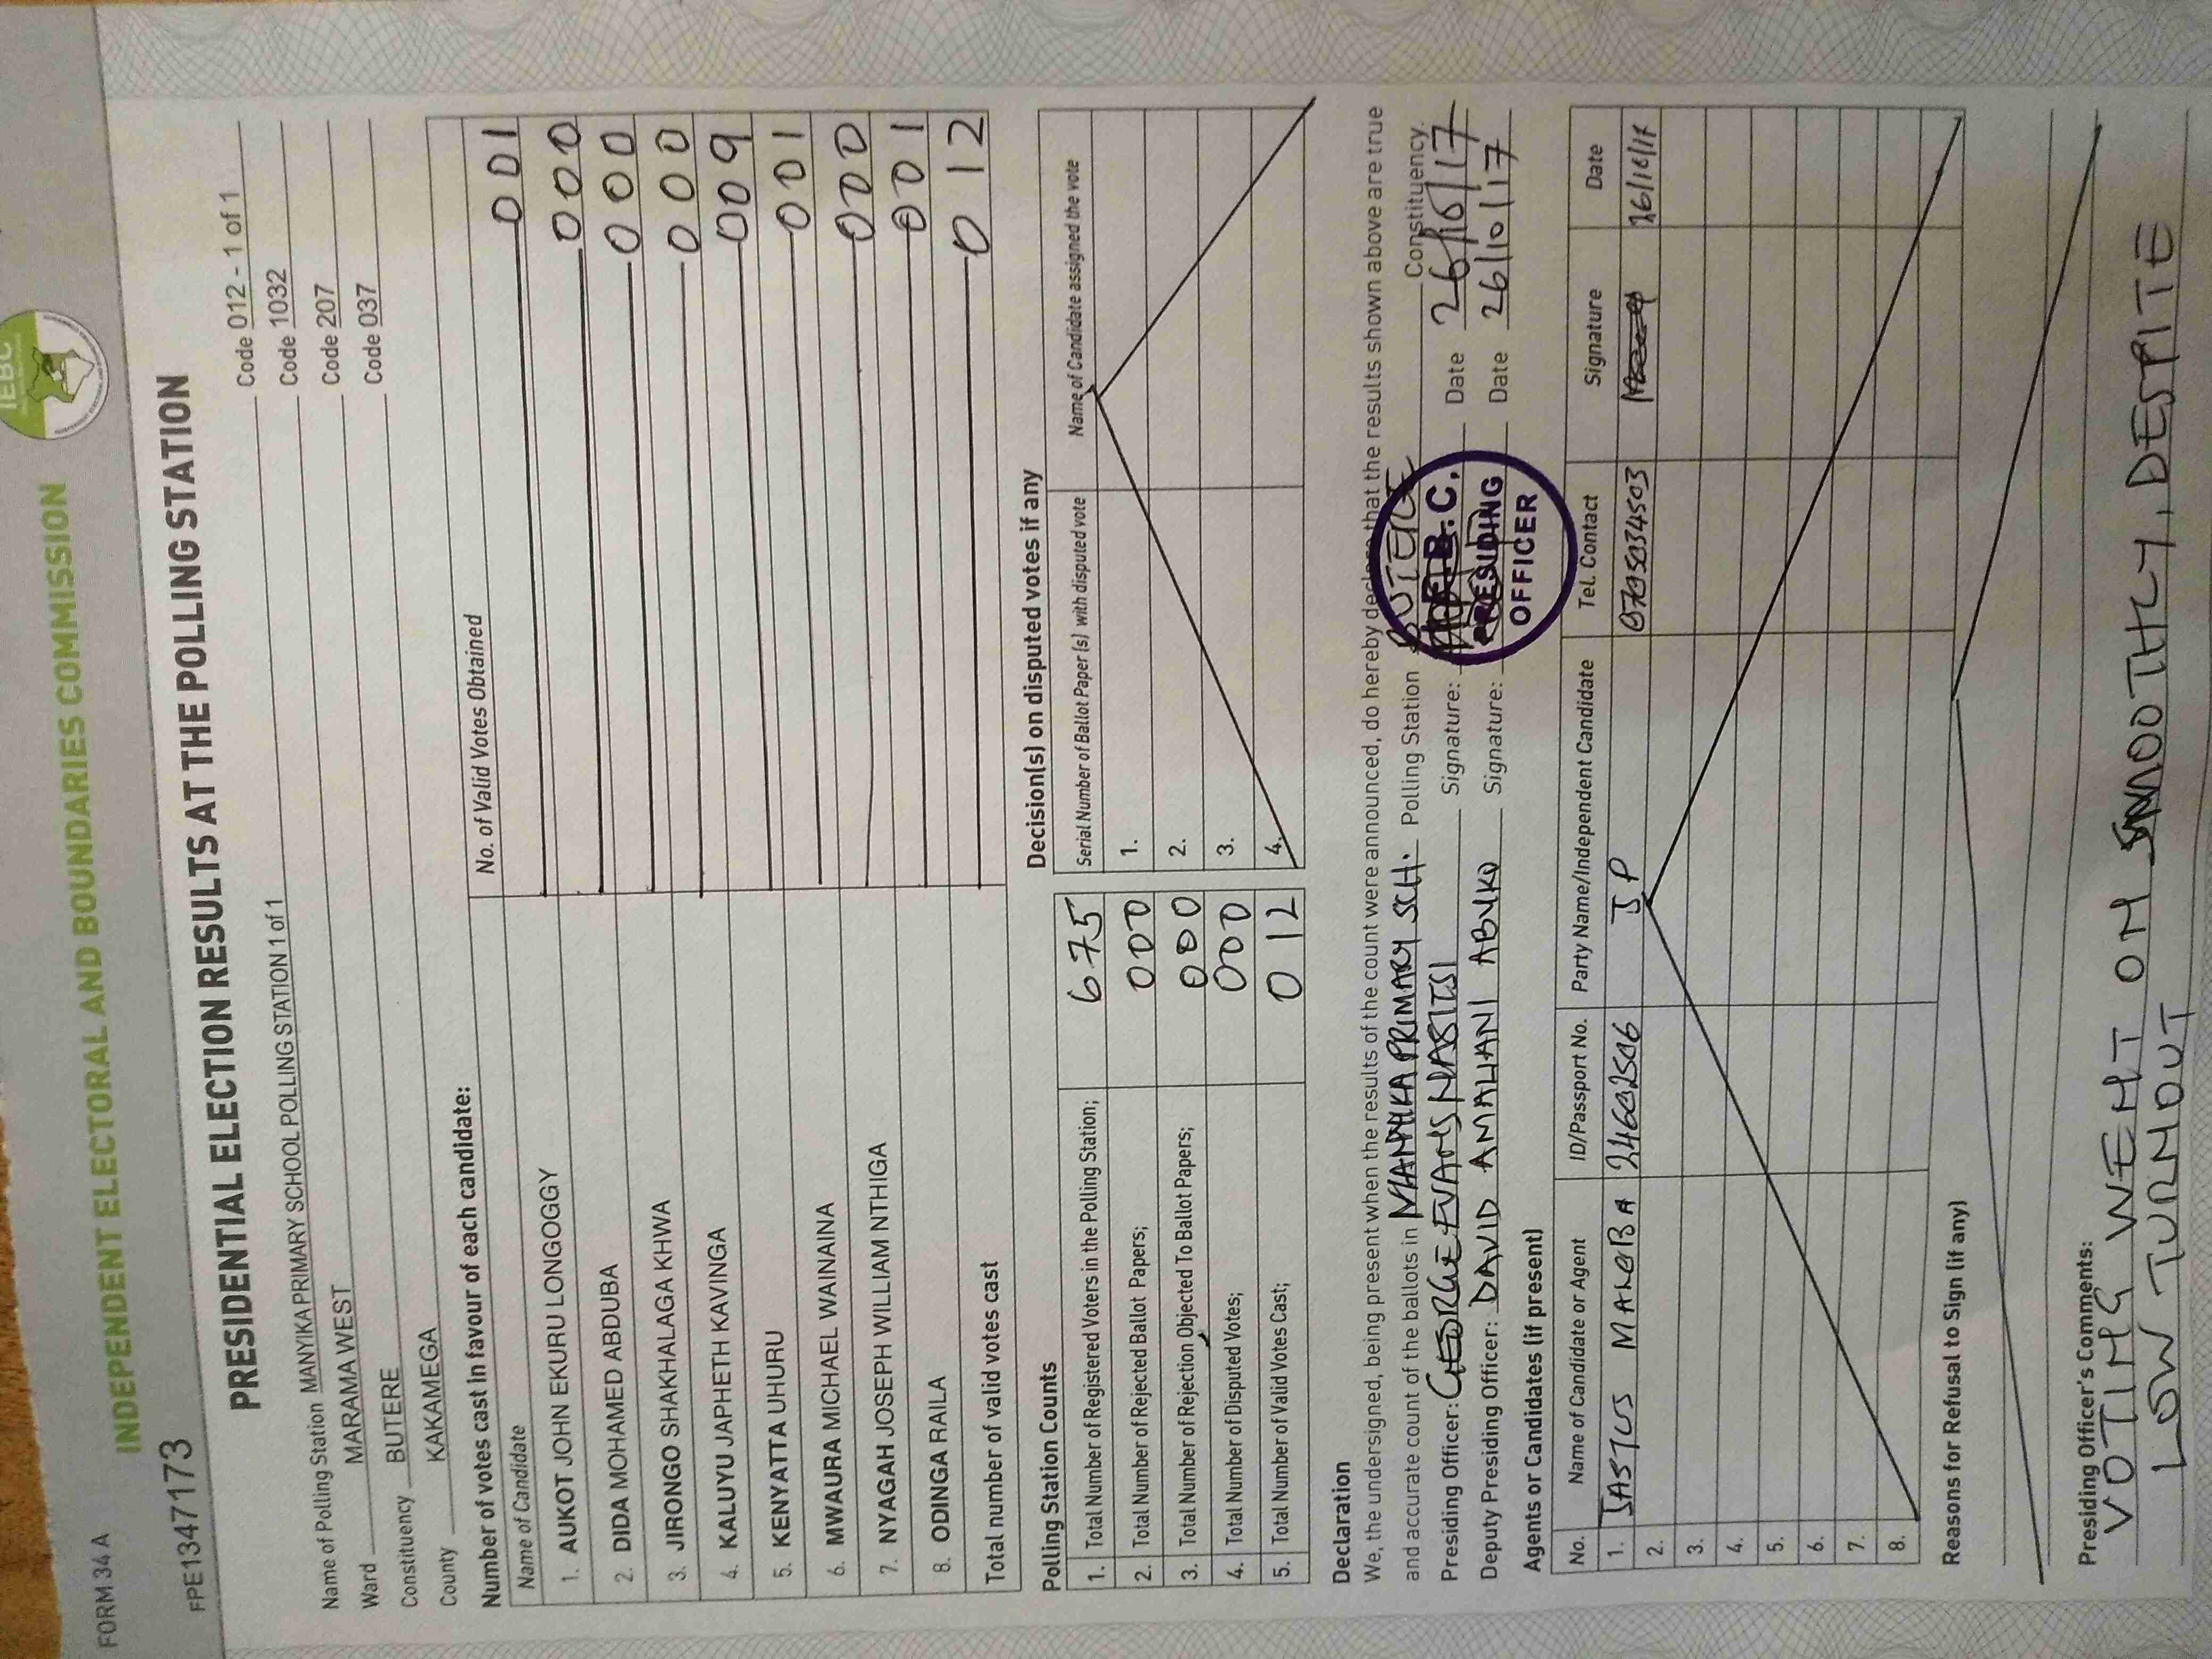 FORM 34 A
IEBC
INDEPENDENT ELECTORAL AND BOUNDARIES COMMISSION
FPE1347173
PRESIDENTIAL ELECTION RESULTS AT THE POLLING STATION
Name of Polling Station MANYIKA PRIMARY SCHOOL POLLING STATION 1 of 1 Code 012 - 1 of 1
Ward MARAMA WEST Code 1032
Constituency BUTERE Code 207
County KAKAMEGA Code 037
Number of votes cast in favour of each candidate:
Name of Candidate No. of Valid Votes Obtained
1. AUKOT JOHN EKURU LONGOGGY 001
2. DIDA MOHAMED ABDUBA 000
3. JIRONGO SHAKHALAGA KHWA 000
4. KALUYU JAPHETH KAVINGA 000
5. KENYATTA UHURU 009
6. MWAURA MICHAEL WAINAINA 001
7. NYAGAH JOSEPH WILLIAM NTHIGA 000
8. ODINGA RAILA 001
Total number of valid votes cast 012
Polling Station Counts
1. Total Number of Registered Voters in the Polling Station; 675
2. Total Number of Rejected Ballot Papers; 000
3. Total Number of Rejection Objected To Ballot Papers; 000
4. Total Number of Disputed Votes; 000
5. Total Number of Valid Votes Cast; 012
Decision(s) on disputed votes if any
Serial Number of Ballot Paper (s) with disputed vote Name of Candidate assigned the vote
1.
2.
3.
4.
Declaration
We, the undersigned, being present when the results of the count were announced, do hereby declare that the results shown above are true
and accurate count of the ballots in MANYIKA PRIMARY SCH. Polling Station BUTERE Constituency.
Presiding Officer: GEORGE EVANS NABITSI Signature: Date 26/10/17
Deputy Presiding Officer: DAVID AMALIANI ABUKO Signature: Date 26/10/17
I.E.B.C.
PRESIDING
OFFICER
Agents or Candidates (if present)
No. Name of Candidate or Agent ID/Passport No. Party Name/Independent Candidate Tel. Contact Signature Date
1. JASTUS JP 26/10/17
2.
3.
4.
5.
6.
7.
8.
Reasons for Refusal to Sign (if any)
Presiding Officer's Comments:
VOTING WENT ON SMOOTHLY, DESPITE
LOW TURNOUT